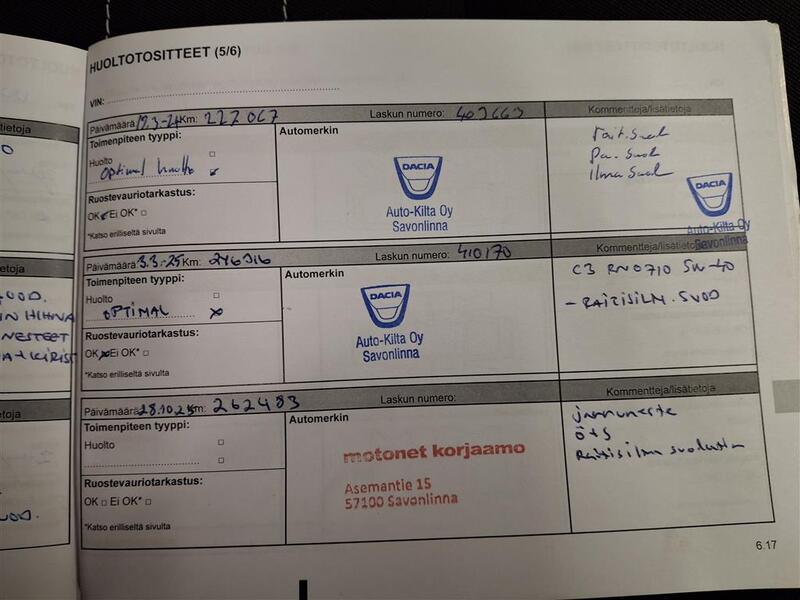 HUOLTOTOSITTEET (5/6)
VIN:
Päivämäärä Km: 222 067 Laskun numero: 403663 Kommentteja/lisätietoja
Toimenpiteen tyyppi: Automerkin
Huolto
Optimal huolto
Ruostevauriotarkastus:
OK Ei OK*
*Katso erilliseltä sivulta
DACIA
Auto-Kilta Oy
Savonlinna
Rait.suod
Pa. Suod
Ilma Suod
DACIA
Auto-Kilta Oy
Savonlinna
Päivämäärä 3.3.-25 Km: 246316 Laskun numero: 410170 Kommentteja/lisätietoja
Toimenpiteen tyyppi: Automerkin
Huolto
OPTIMAL
Ruostevauriotarkastus:
OK Ei OK*
*Katso erilliseltä sivulta
DACIA
Auto-Kilta Oy
Savonlinna
C3 RN0710 5W-40
- RAITISILM. SUOD
Päivämäärä 28.10.25 Km: 262483 Laskun numero: Kommentteja/lisätietoja
Toimenpiteen tyyppi: Automerkin
Huolto
Ruostevauriotarkastus:
OK Ei OK*
*Katso erilliseltä sivulta
motonet korjaamo
Asemantie 15
57100 Savonlinna
jarruneste
ö+s
Raitisilma suodatin
6.17
tietoja
HIHNA
NESTEET